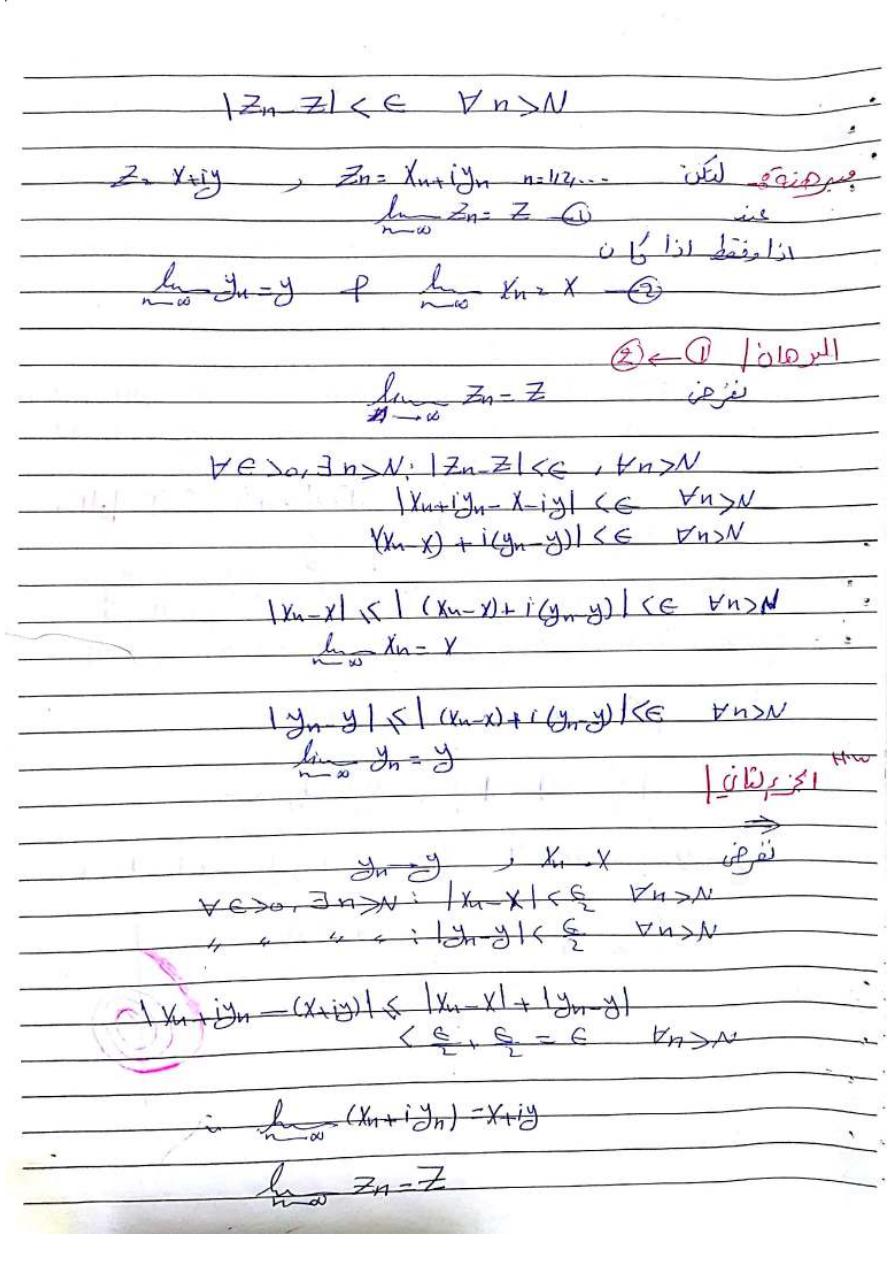 |Zn - Z| < ∈ ∀ n > N
مبرهنة: لتكن Zn = Xn + iyn n=1,2,... , Z = X+iy
عند lim n→∞ Zn = Z — ①
اذا وفقط اذا كان
lim n→∞ yn = y و lim n→∞ Xn = X — ②
البرهان / ① → ②
نفرض lim n→∞ Zn = Z
∀ ∈ > 0, ∃ n > N : |Zn - Z| < ∈ , ∀n > N
|Xn + iyn - X - iy| < ∈ ∀n > N
|(Xn - X) + i(yn - y)| < ∈ ∀n > N
|Xn - X| ≤ |(Xn - X) + i(yn - y)| < ∈ ∀n > N
lim n→∞ Xn = X
|yn - y| ≤ |(Xn - X) + i(yn - y)| < ∈ ∀n > N
lim n→∞ yn = y
H.w الجزء الثاني /
⇒
نفرض Xn → X , yn → y
∀ ∈ > 0, ∃ n > N : |Xn - X| < ∈/2 ∀n > N
〃 〃 〃 〃 : |yn - y| < ∈/2 ∀n > N
|Xn + iyn - (X+iy)| ≤ |Xn - X| + |yn - y|
< ∈/2 + ∈/2 = ∈ ∀n > N
∴ lim n→∞ (Xn + iyn) = X+iy
lim n→∞ Zn = Z